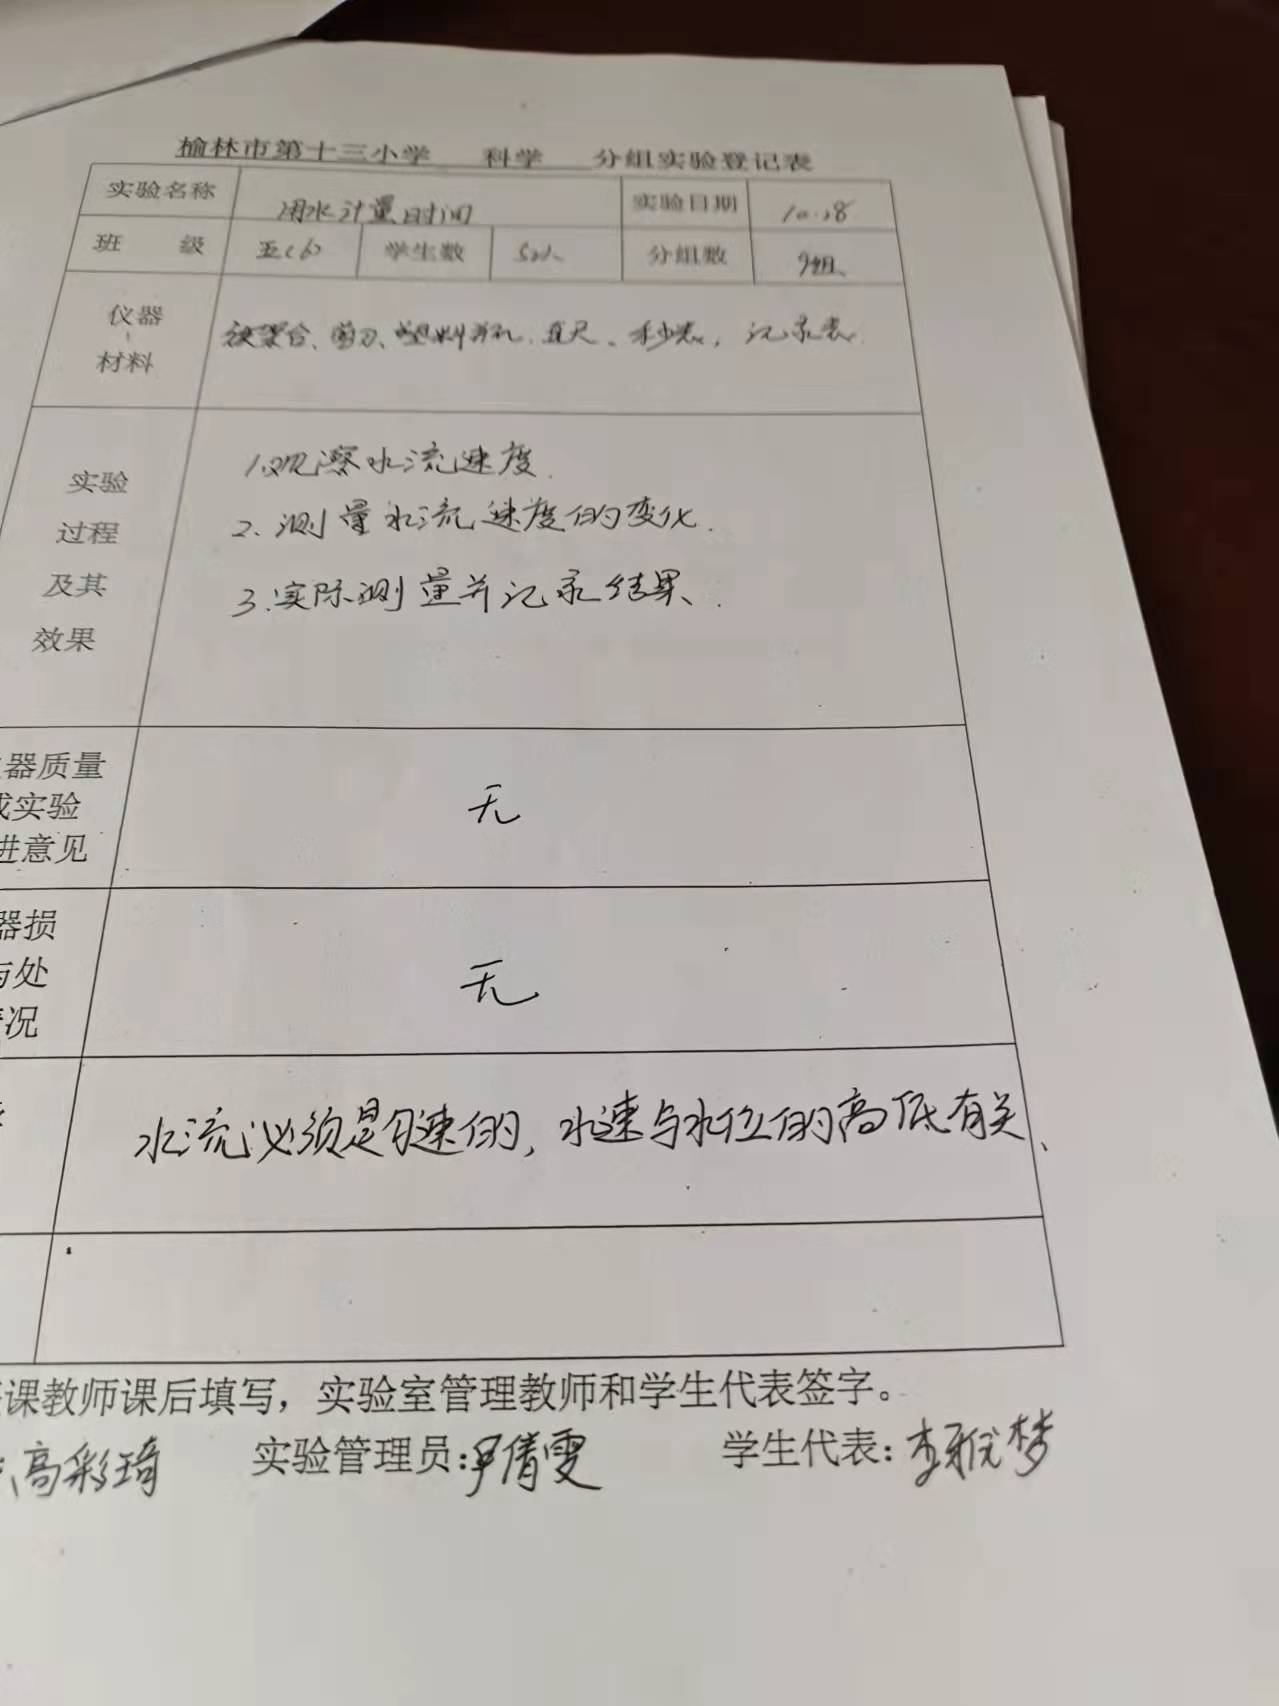 榆林市第十三小学 科学 分组实验登记表
实验名称 用水计量时间 实验日期 10.28
班 级 五(6) 学生数 50人 分组数 9组
仪器、材料 铁架台、剪刀、塑料瓶、直尺、秒表,记录表
实验
过程
及其
效果
1.观察水流速度.
2.测量水流速度的变化.
3.实际测量并记录结果、.
器质量
或实验
进意见
无
器损
与处
情况
无
水流必须是匀速的,水速与水位的高低有关、
课教师课后填写,实验室管理教师和学生代表签字。
高彩琦 实验管理员: 倩雯 学生代表: 李雅梦